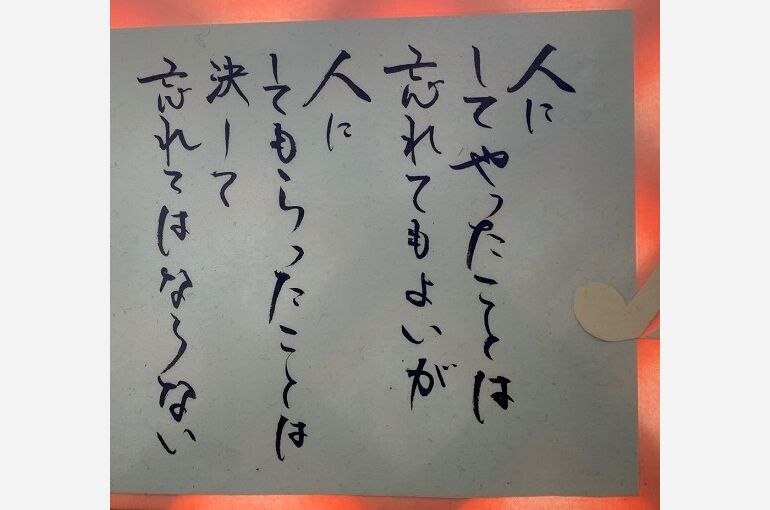 人に
してやったことは
忘れてもよいが
人に
してもらったことは
決して
忘れてはならない